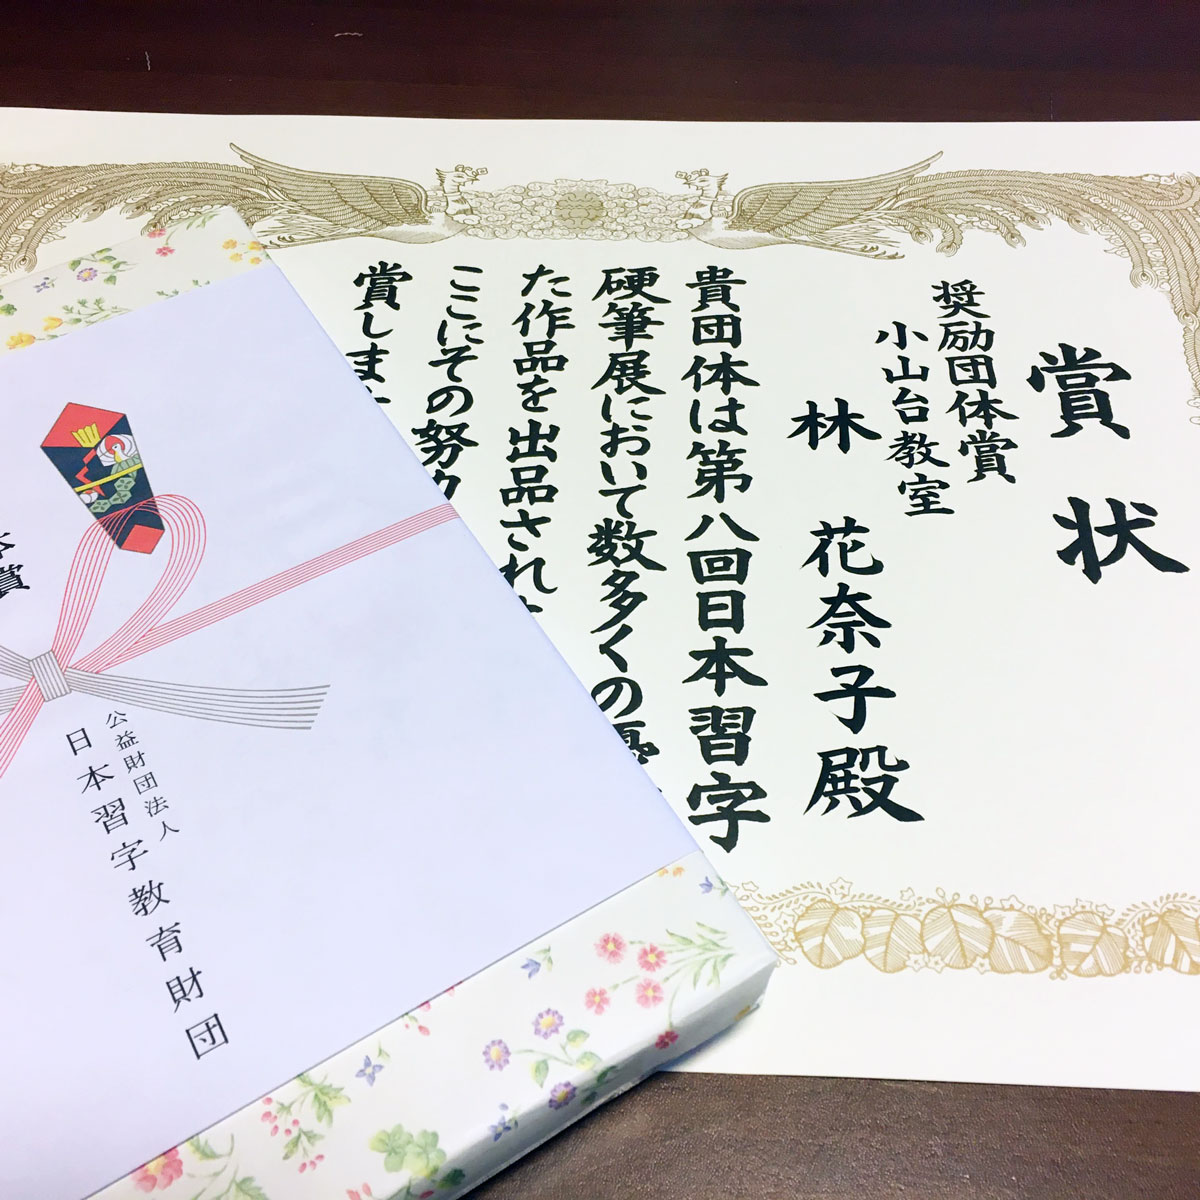 賞状
奨励団体賞
小山台教室
林 花奈子殿
貴団体は第八回日本習字
硬筆展において数多くの優
た作品を出品され
ここにその努力
賞しま
賞
公益財団法人
日本習字教育財団